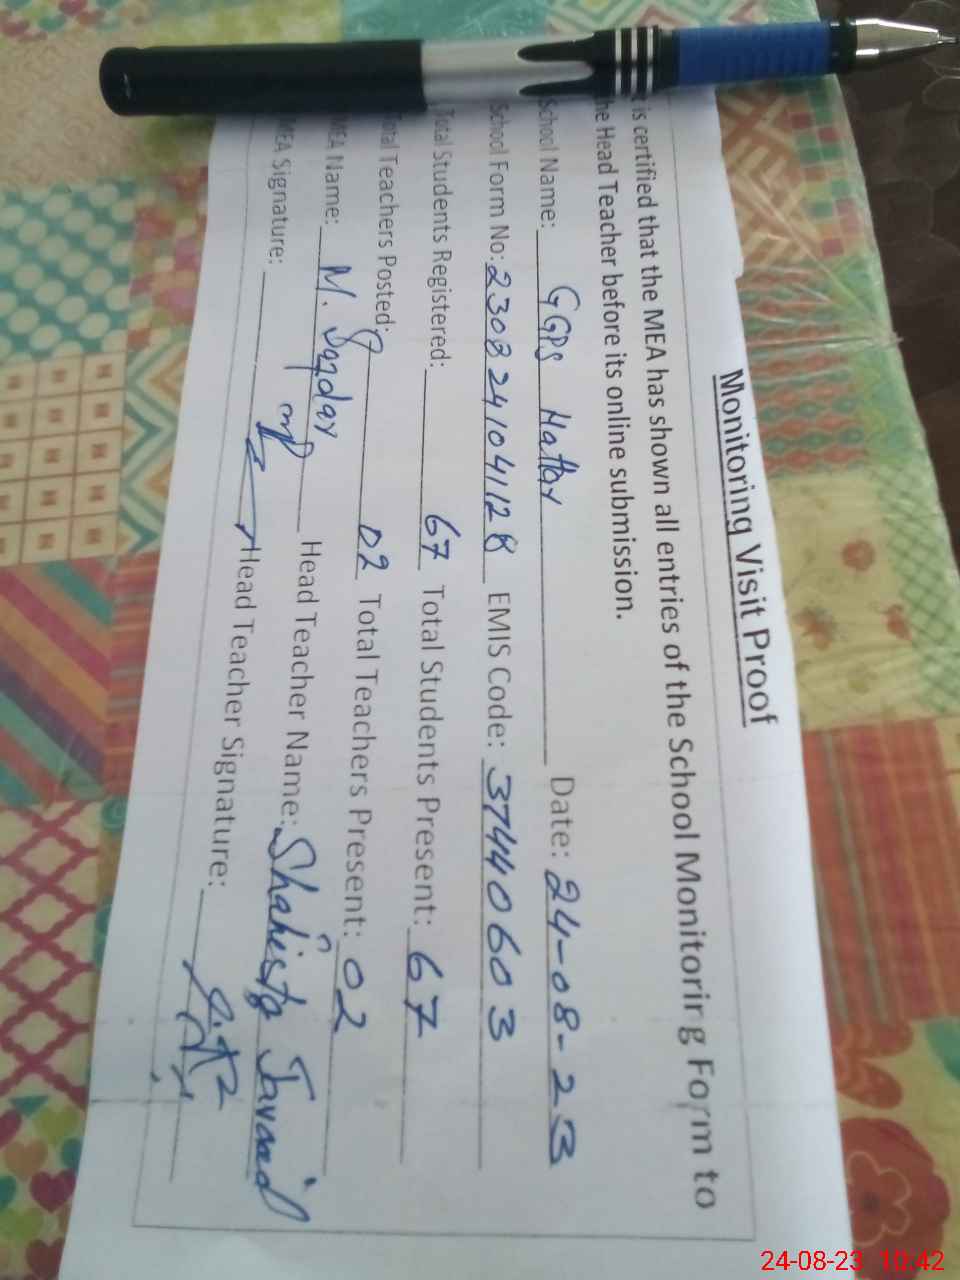 Monitoring Visit Proof
t is certified that the MEA has shown all entries of the School Monitoring Form to
he Head Teacher before its online submission.
School Name: GGPS Hattar Date: 24-08-23
School Form No: 2308 241041128 EMIS Code: 37440603
Total Students Registered: 67 Total Students Present: 67
Total Teachers Posted: 02 Total Teachers Present: 02
MEA Name: M. Head Teacher Name: Shahista Javaid
MEA Signature: Head Teacher Signature:
24-08-23 10:42